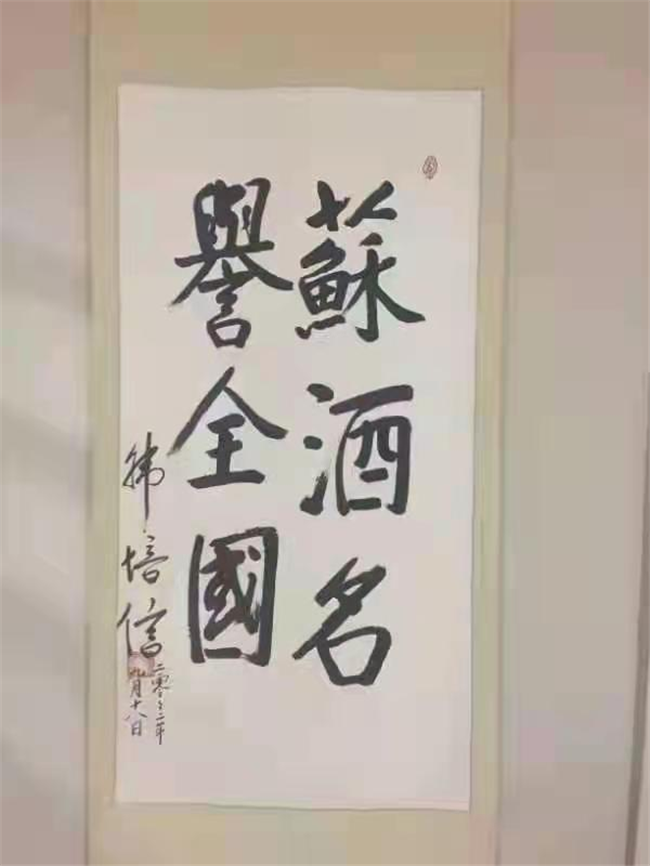 蘇酒名
譽全國
韩培信
二零零二年
月十八日